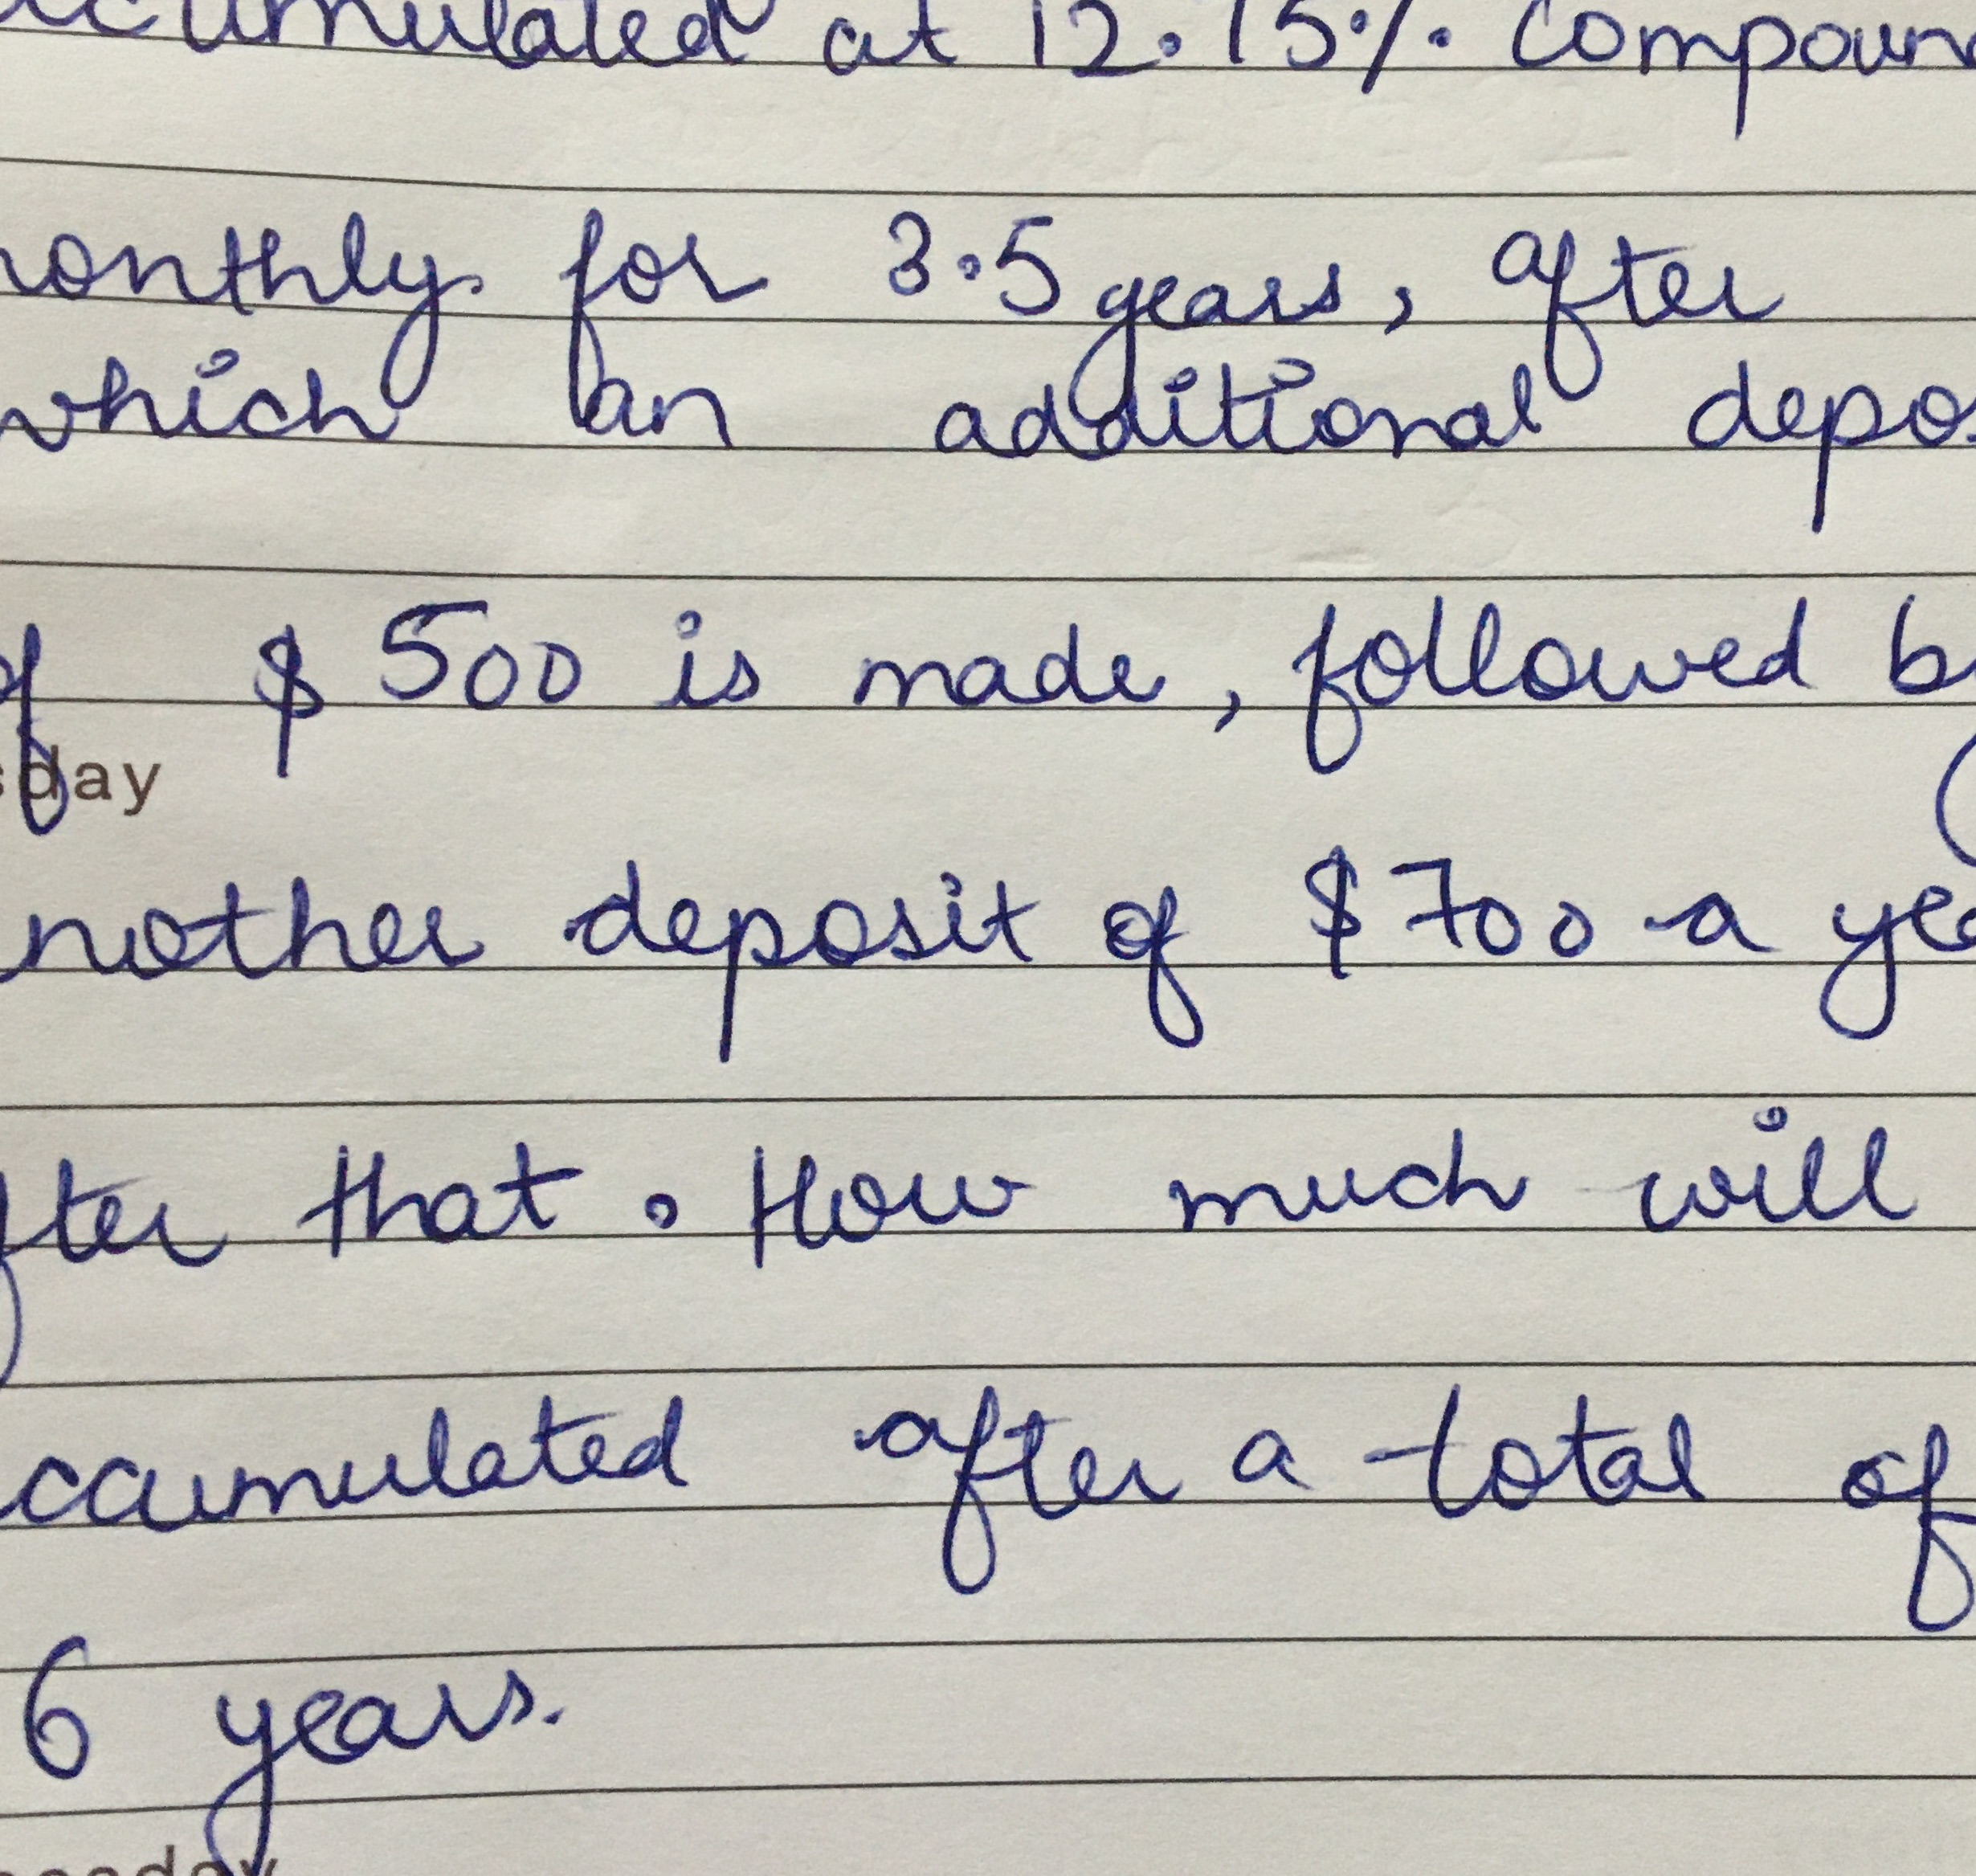 ccumulated at 12.75%. Compoun
onthly. for 3.5 years, after
which an additional depos
of $ 500 is made, followed by
sday
nother deposit of $700 a yea
fter that. How much will
ccumulated after a total of
6 years.